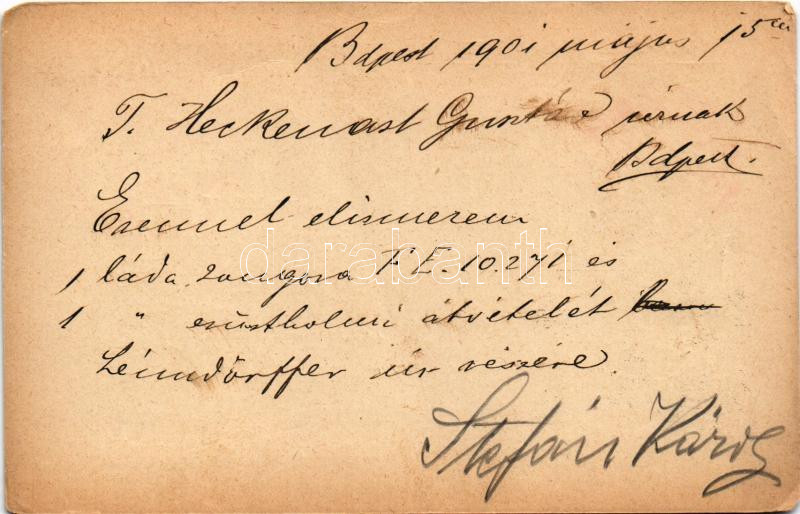 Bdpest 1901 május 15én
T. Heckenast Gusztáv úrnak
Bdpest.
Ezennel elismerem
1 láda zongora F E. 10.271 és
1 " átvételét
úr részére
Stefán Károly
darabanth